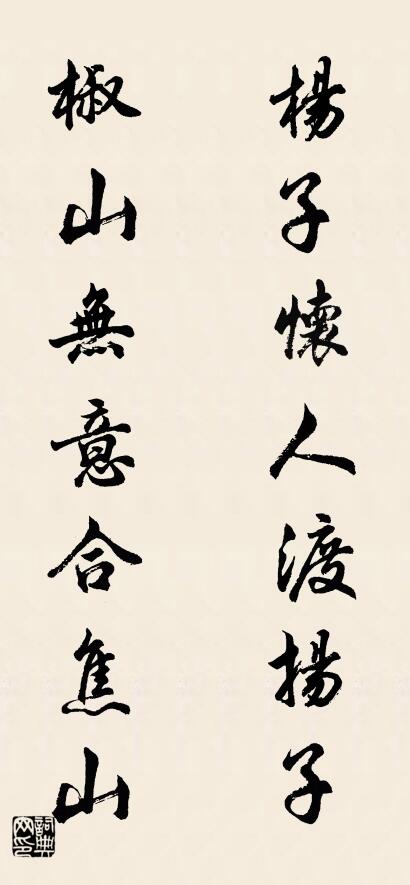 楊子懷人渡揚子
椒山無意合焦山
詞典网印